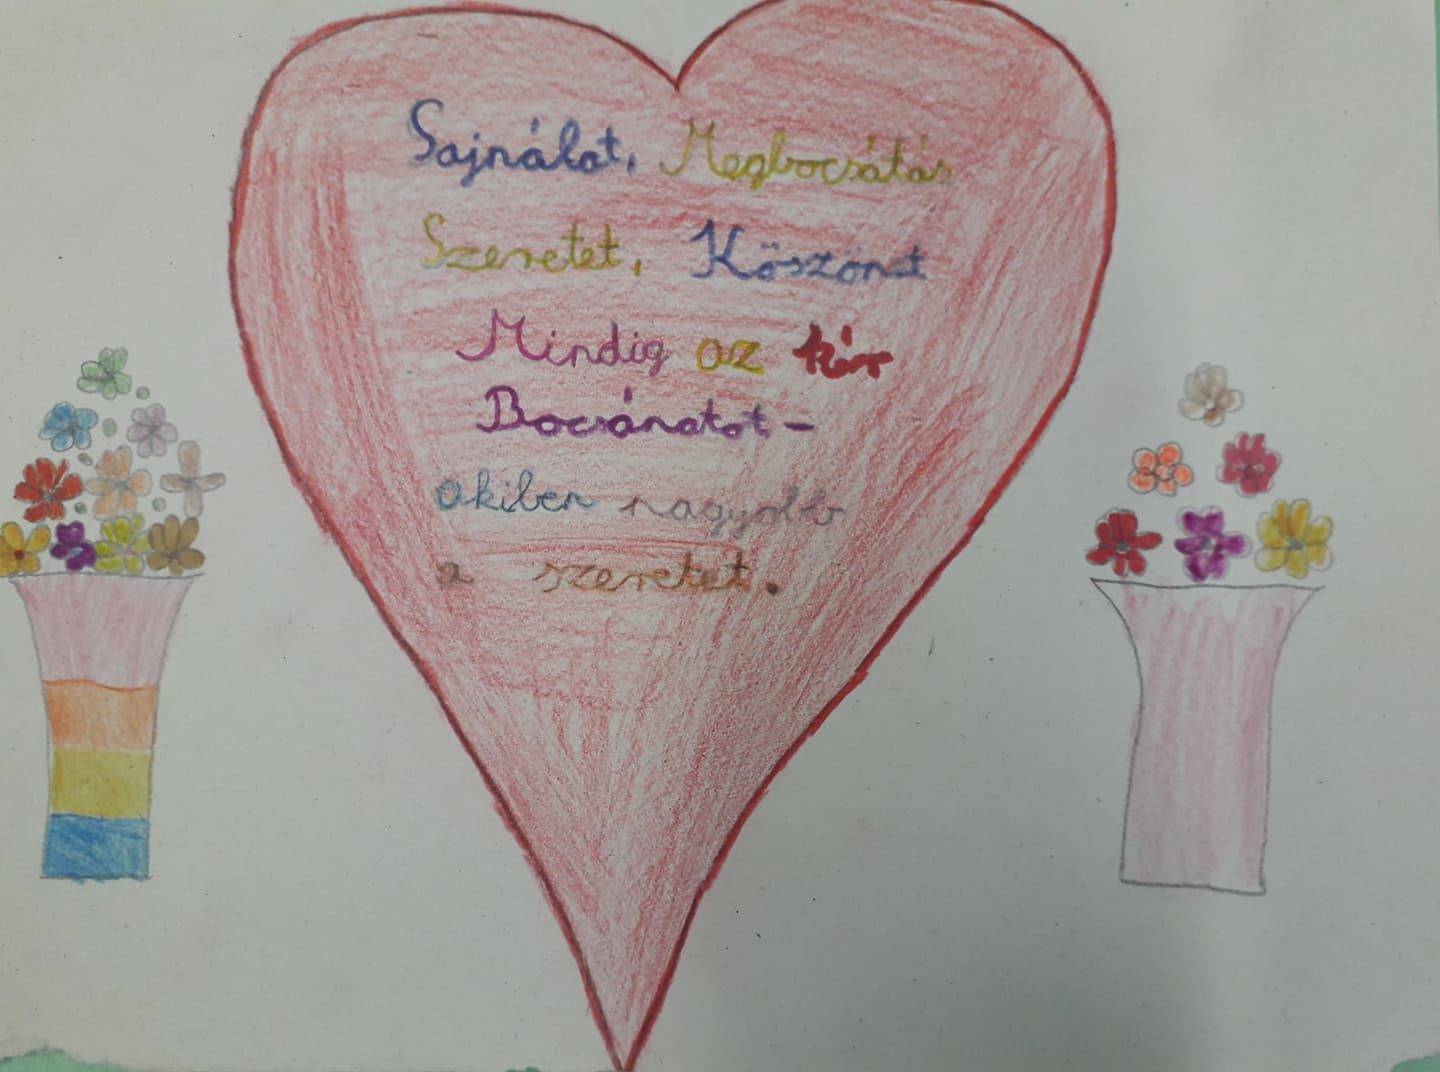 Sajnálat, Megbocsátás
Szeretet, Köszönet
Mindig az kér
Bocsánatot -
akiben nagyobb
a szeretet.